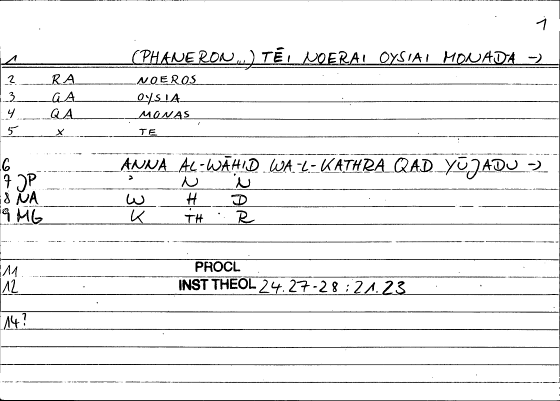 1
1 (PHANERON...) TĒI NOERAI OYSIAI MONADA →
2 RA NOEROS
3 GA OYSIA
4 QA MONAS
5 X TE
6 ANNA AL-WĀHID WA-L-KATHRA QAD YŪJADU →
7 JP ' N N
8 NA W H D
9 MG K TH R
11 PROCL
12 INST THEOL 24.27-28 : 21.23
14?